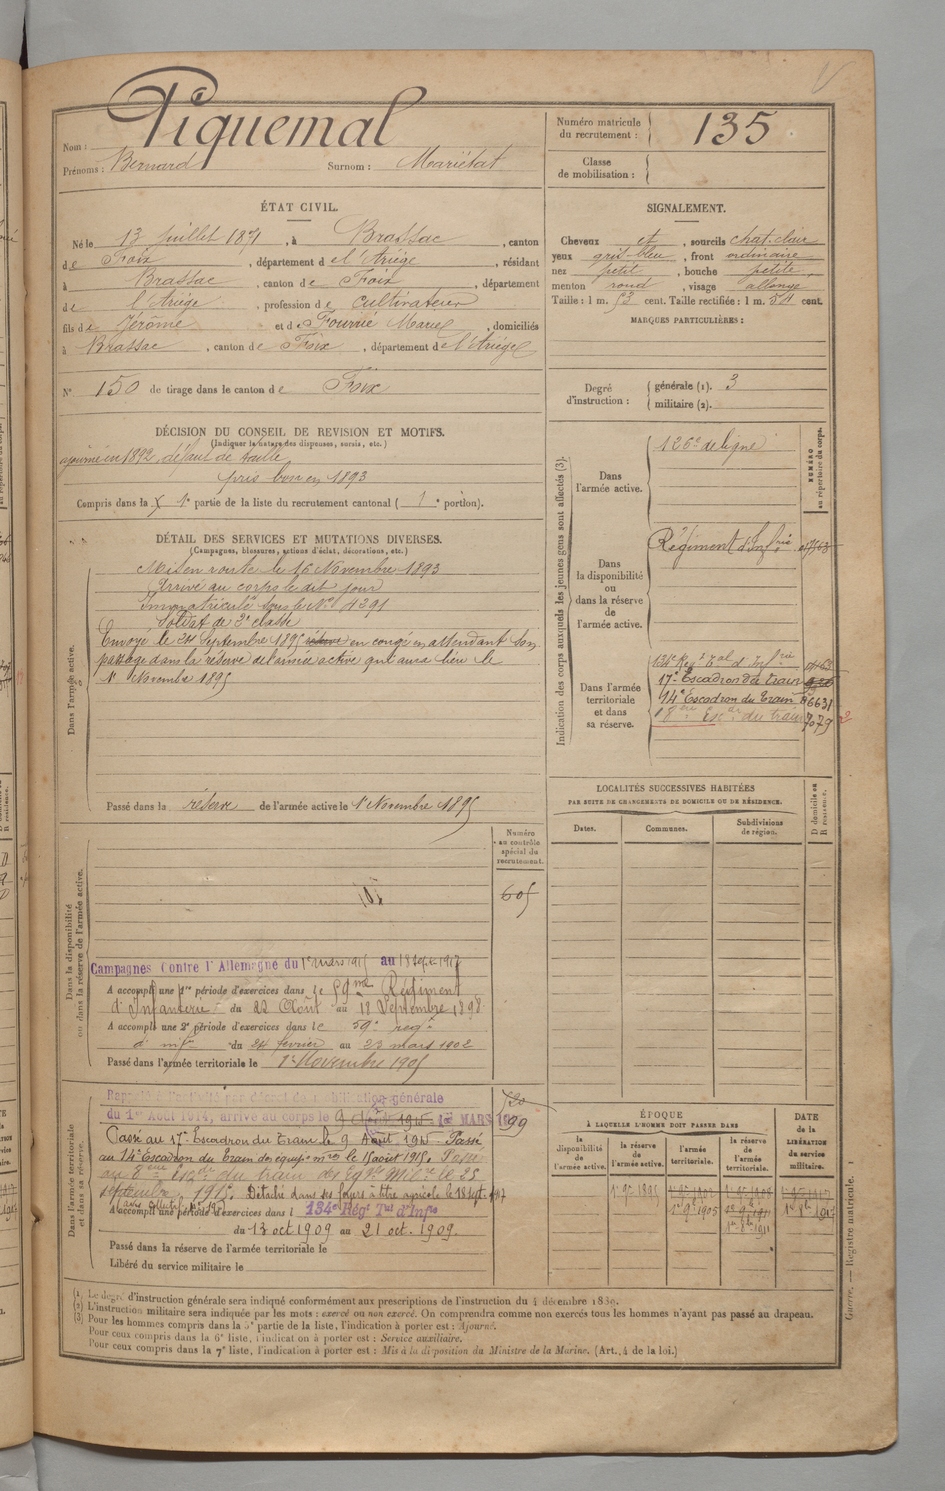 Nom : Piquemal
Prénoms : Bernard Surnom : Mariétat
Numéro matricule du recrutement : 135
Classe de mobilisation :
ÉTAT CIVIL.
Né le 13 Juillet 1871, à Brassac, canton
de Foix, département de l'Ariège, résidant
à Brassac, canton de Foix, département
de l'Ariège, profession de cultivateur
fils de Jérôme et de Fourrié Marie, domiciliés
à Brassac, canton de Foix, département de l'Ariège
N° 150 de tirage dans le canton de Foix
SIGNALEMENT.
Cheveux et, sourcils chat. clair
yeux gris-bleu, front ordinaire
nez petit, bouche petite,
menton rond, visage allongé
Taille : 1 m. 53 cent. Taille rectifiée : 1 m. 54 cent.
MARQUES PARTICULIÈRES :
Degré d'instruction : générale (1). 3
militaire (2).
DÉCISION DU CONSEIL DE REVISION ET MOTIFS.
(Indiquer la nature des dispenses, sursis, etc.)
ajourné en 1892, défaut de taille,
pris bon en 1893
Compris dans la 1e partie de la liste du recrutement cantonal ( 1e portion).
DÉTAIL DES SERVICES ET MUTATIONS DIVERSES.
(Campagnes, blessures, actions d'éclat, décorations, etc.)
Dans l'armée active.
Mis en route le 16 Novembre 1893
Arrivé au corps le dit jour
Immatriculé sous le N° 4391
Soldat de 2e classe
Envoyé le 24 Septembre 1895 en congé en attendant son
passage dans la réserve de l'armée active qui aura lieu le
1er Novembre 1895
Passé dans la réserve de l'armée active le 1er Novembre 1895
Indication des corps auxquels les jeunes gens sont affectés (3).
NUMÉRO au répertoire du corps.
Dans l'armée active.
126e de ligne
Dans la disponibilité ou dans la réserve de l'armée active.
Régiment d'Infrie
Dans l'armée territoriale et dans sa réserve.
134e Regt Tal d'Infrie
17e Escadron du train
14e Escadron du Train 6631
18eme Escdr du train 7079 2
LOCALITÉS SUCCESSIVES HABITÉES
PAR SUITE DE CHANGEMENTS DE DOMICILE OU DE RÉSIDENCE.
Dates. Communes. Subdivisions de région. D domicile ou R résidence.
Dans la disponibilité ou dans la réserve de l'armée active.
Numéro au contrôle spécial du recrutement.
605
Campagnes Contre l'Allemagne du 1er mars 1915 au 18 sept 1917
A accompli une 1re période d'exercices dans le 59me Régiment
d'Infanterie du 22 Août au 18 Septembre 1898
A accompli une 2e période d'exercices dans le 59e regt
d'infie du 24 février au 23 mars 1902
Passé dans l'armée territoriale le 1er Novembre 1905
Dans l'armée territoriale et dans sa réserve.
Rappelé à l'activité par décret de mobilisation générale
du 1er Août 1914, arrivé au corps le 1er MARS
Passé au 17e Escadron du Train le 9 Août 1915. Passé
au 14e Escadron du Train des équip. mres le 15 août 1915. Passé
au 18eme Escdr du train des Eqges Milres le 25
septembre 1915. Détaché dans ses foyers à titre agricole le 18 sept. 1917
A accompli une période d'exercices dans l 134e Régt Tal d'Infie
du 13 oct 1909 au 21 oct. 1909.
Passé dans la réserve de l'armée territoriale le
Libéré du service militaire le
ÉPOQUE
À LAQUELLE L'HOMME DOIT PASSER DANS
la disponibilité de l'armée active. la réserve de l'armée active. l'armée territoriale. la réserve de l'armée territoriale.
DATE de la LIBÉRATION du service militaire.
1er 9e 1895
1er 9e 1905
(1) Le degré d'instruction générale sera indiqué conformément aux prescriptions de l'instruction du 4 décembre 1889.
(2) L'instruction militaire sera indiquée par les mots : exercé ou non exercé. On comprendra comme non exercés tous les hommes n'ayant pas passé au drapeau.
(3) Pour les hommes compris dans la 5e partie de la liste, l'indication à porter est : Ajourné.
Pour ceux compris dans la 6e liste, l'indication à porter est : Service auxiliaire.
Pour ceux compris dans la 7e liste, l'indication à porter est : Mis à la disposition du Ministre de la Marine. (Art. 4 de la loi.)
Guerre. — Registre matricule. 1